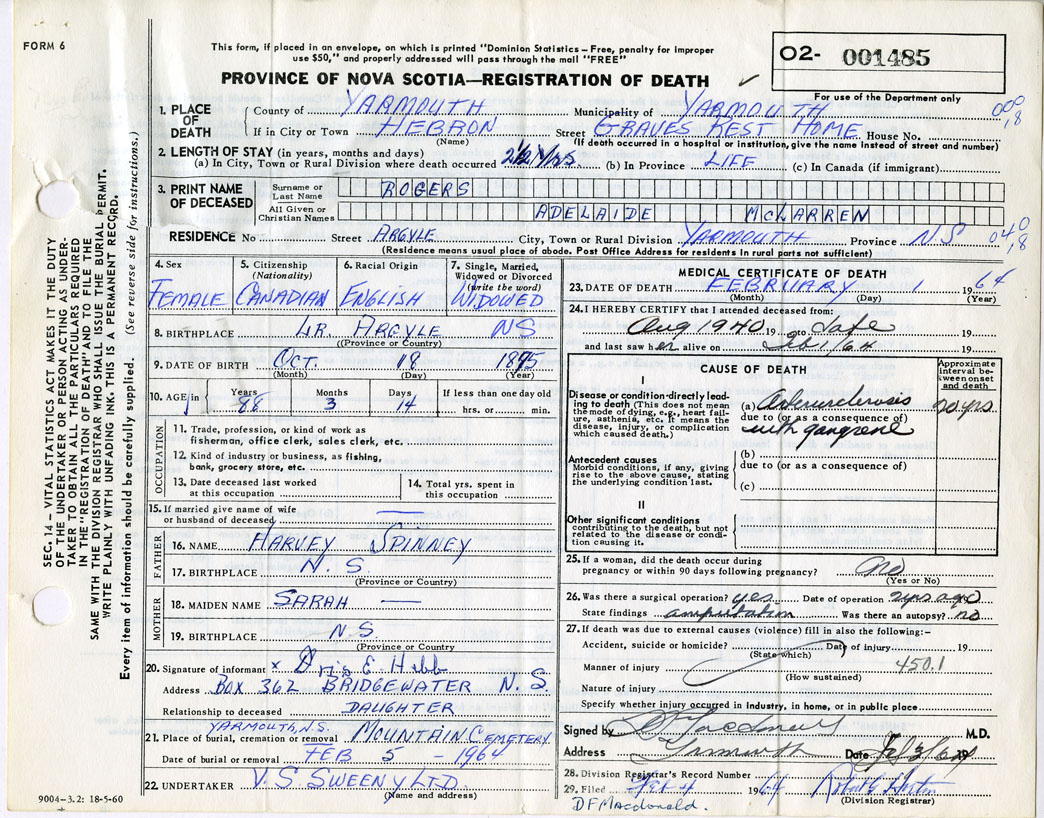 FORM 6
This form, if placed in an envelope, on which is printed "Dominion Statistics – Free, penalty for improper
use $50," and properly addressed will pass through the mail "FREE"
O2- 001485
For use of the Department only
PROVINCE OF NOVA SCOTIA—REGISTRATION OF DEATH ✓
1. PLACE OF DEATH
County of YARMOUTH Municipality of YARMOUTH 000 18
If in City or Town HEBRON Street GRAVES REST HOME House No.
(Name) (If death occurred in a hospital or institution, give the name instead of street and number)
2. LENGTH OF STAY (in years, months and days)
(a) In City, Town or Rural Division where death occurred 2 1/2 YRS (b) In Province LIFE (c) In Canada (if immigrant)
3. PRINT NAME OF DECEASED
Surname or Last Name ROGERS
All Given or Christian Names ADELAIDE MCLARREN
RESIDENCE No Street ARGYLE City, Town or Rural Division YARMOUTH Province NS 040 18
(Residence means usual place of abode. Post Office Address for residents in rural parts not sufficient)
4. Sex FEMALE
5. Citizenship (Nationality) CANADIAN
6. Racial Origin ENGLISH
7. Single, Married, Widowed or Divorced (write the word) WIDOWED
8. BIRTHPLACE LR. ARGYLE NS
(Province or Country)
9. DATE OF BIRTH OCT. 18 1875
(Month) (Day) (Year)
10. AGE in Years 88 Months 3 Days 14 If less than one day old hrs. or min.
OCCUPATION
11. Trade, profession, or kind of work as
fisherman, office clerk, sales clerk, etc.
12. Kind of industry or business, as fishing,
bank, grocery store, etc.
13. Date deceased last worked
at this occupation
14. Total yrs. spent in
this occupation
15. If married give name of wife
or husband of deceased —
FATHER
16. NAME HARVEY SPINNEY
17. BIRTHPLACE N. S.
(Province or Country)
MOTHER
18. MAIDEN NAME SARAH —
19. BIRTHPLACE N.S.
(Province or Country)
20. Signature of informant x Doris E. Hebb
Address BOX 362 BRIDGEWATER N. S.
Relationship to deceased DAUGHTER
YARMOUTH, N.S.
21. Place of burial, cremation or removal MOUNTAIN CEMETERY
Date of burial or removal FEB 5 - 1964
22. UNDERTAKER V. S SWEENY LTD.
(Name and address)
9004-3.2: 18-5-60
MEDICAL CERTIFICATE OF DEATH
23. DATE OF DEATH FEBRUARY 1 1964
(Month) (Day) (Year)
24. I HEREBY CERTIFY that I attended deceased from:
Aug 1940 19 to date 19
and last saw her alive on Feb 1/64 19
CAUSE OF DEATH
Approximate interval between onset and death
I
Disease or condition directly leading to death (This does not mean the mode of dying, e.g., heart failure, asthenia, etc. It means the disease, injury, or complication which caused death.)
(a) Arteriosclerosis 20 yrs
due to (or as a consequence of)
with gangrene
Antecedent causes
Morbid conditions, if any, giving rise to the above cause, stating the underlying condition last.
(b)
due to (or as a consequence of)
(c)
II
Other significant conditions
contributing to the death, but not related to the disease or condition causing it.
25. If a woman, did the death occur during
pregnancy or within 90 days following pregnancy? no
(Yes or No)
26. Was there a surgical operation? yes Date of operation 2 yrs ago
State findings amputation Was there an autopsy? no
27. If death was due to external causes (violence) fill in also the following:–
Accident, suicide or homicide? Date of injury 19
(State which)
Manner of injury 450.1
(How sustained)
Nature of injury
Specify whether injury occurred in industry, in home, or in public place
Signed by DF Macdonald M.D.
Address Yarmouth Date Feb 3/64 19
28. Division Registrar's Record Number
29. Filed Feb 4 1964
(Division Registrar)
DF Macdonald.
SEC. 14 – VITAL STATISTICS ACT MAKES IT THE DUTY
OF THE UNDERTAKER OR PERSON ACTING AS UNDER-
TAKER TO OBTAIN ALL THE PARTICULARS REQUIRED
IN THE "REGISTRATION OF DEATH" AND TO FILE THE
SAME WITH THE DIVISION REGISTRAR WHO SHALL ISSUE THE BURIAL PERMIT.
WRITE PLAINLY WITH UNFADING INK. THIS IS A PERMANENT RECORD.
Every item of information should be carefully supplied. (See reverse side for instructions.)